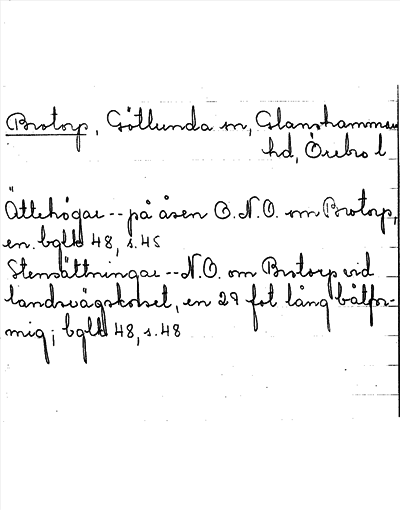 Brotorp, Götlunda sn, Glanshammars
hd, Örebro l
Ättehögar -- på åsen O.N.O. om Brotorp,
en. bgld 48, s. 45
Stensättningar -- N.O. om Brotorp vid
landsvägskorset, en 29 fot lång båtfor-
mig; bgld 48, s. 48